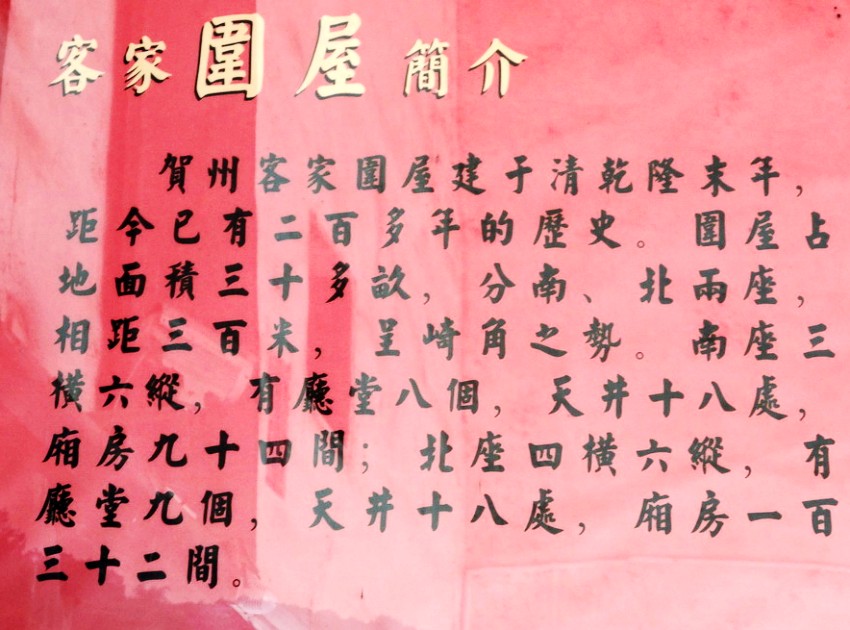 客家圍屋簡介
賀州客家圍屋建于清乾隆末年，
距今已有二百多年的歷史。圍屋占
地面積三十多畝，分南、北兩座，
相距三百米，呈崎角之勢。南座三
橫六縱，有廳堂八個，天井十八處，
廂房九十四間；北座四橫六縱，有
廳堂九個，天井十八處，廂房一百
三十二間。